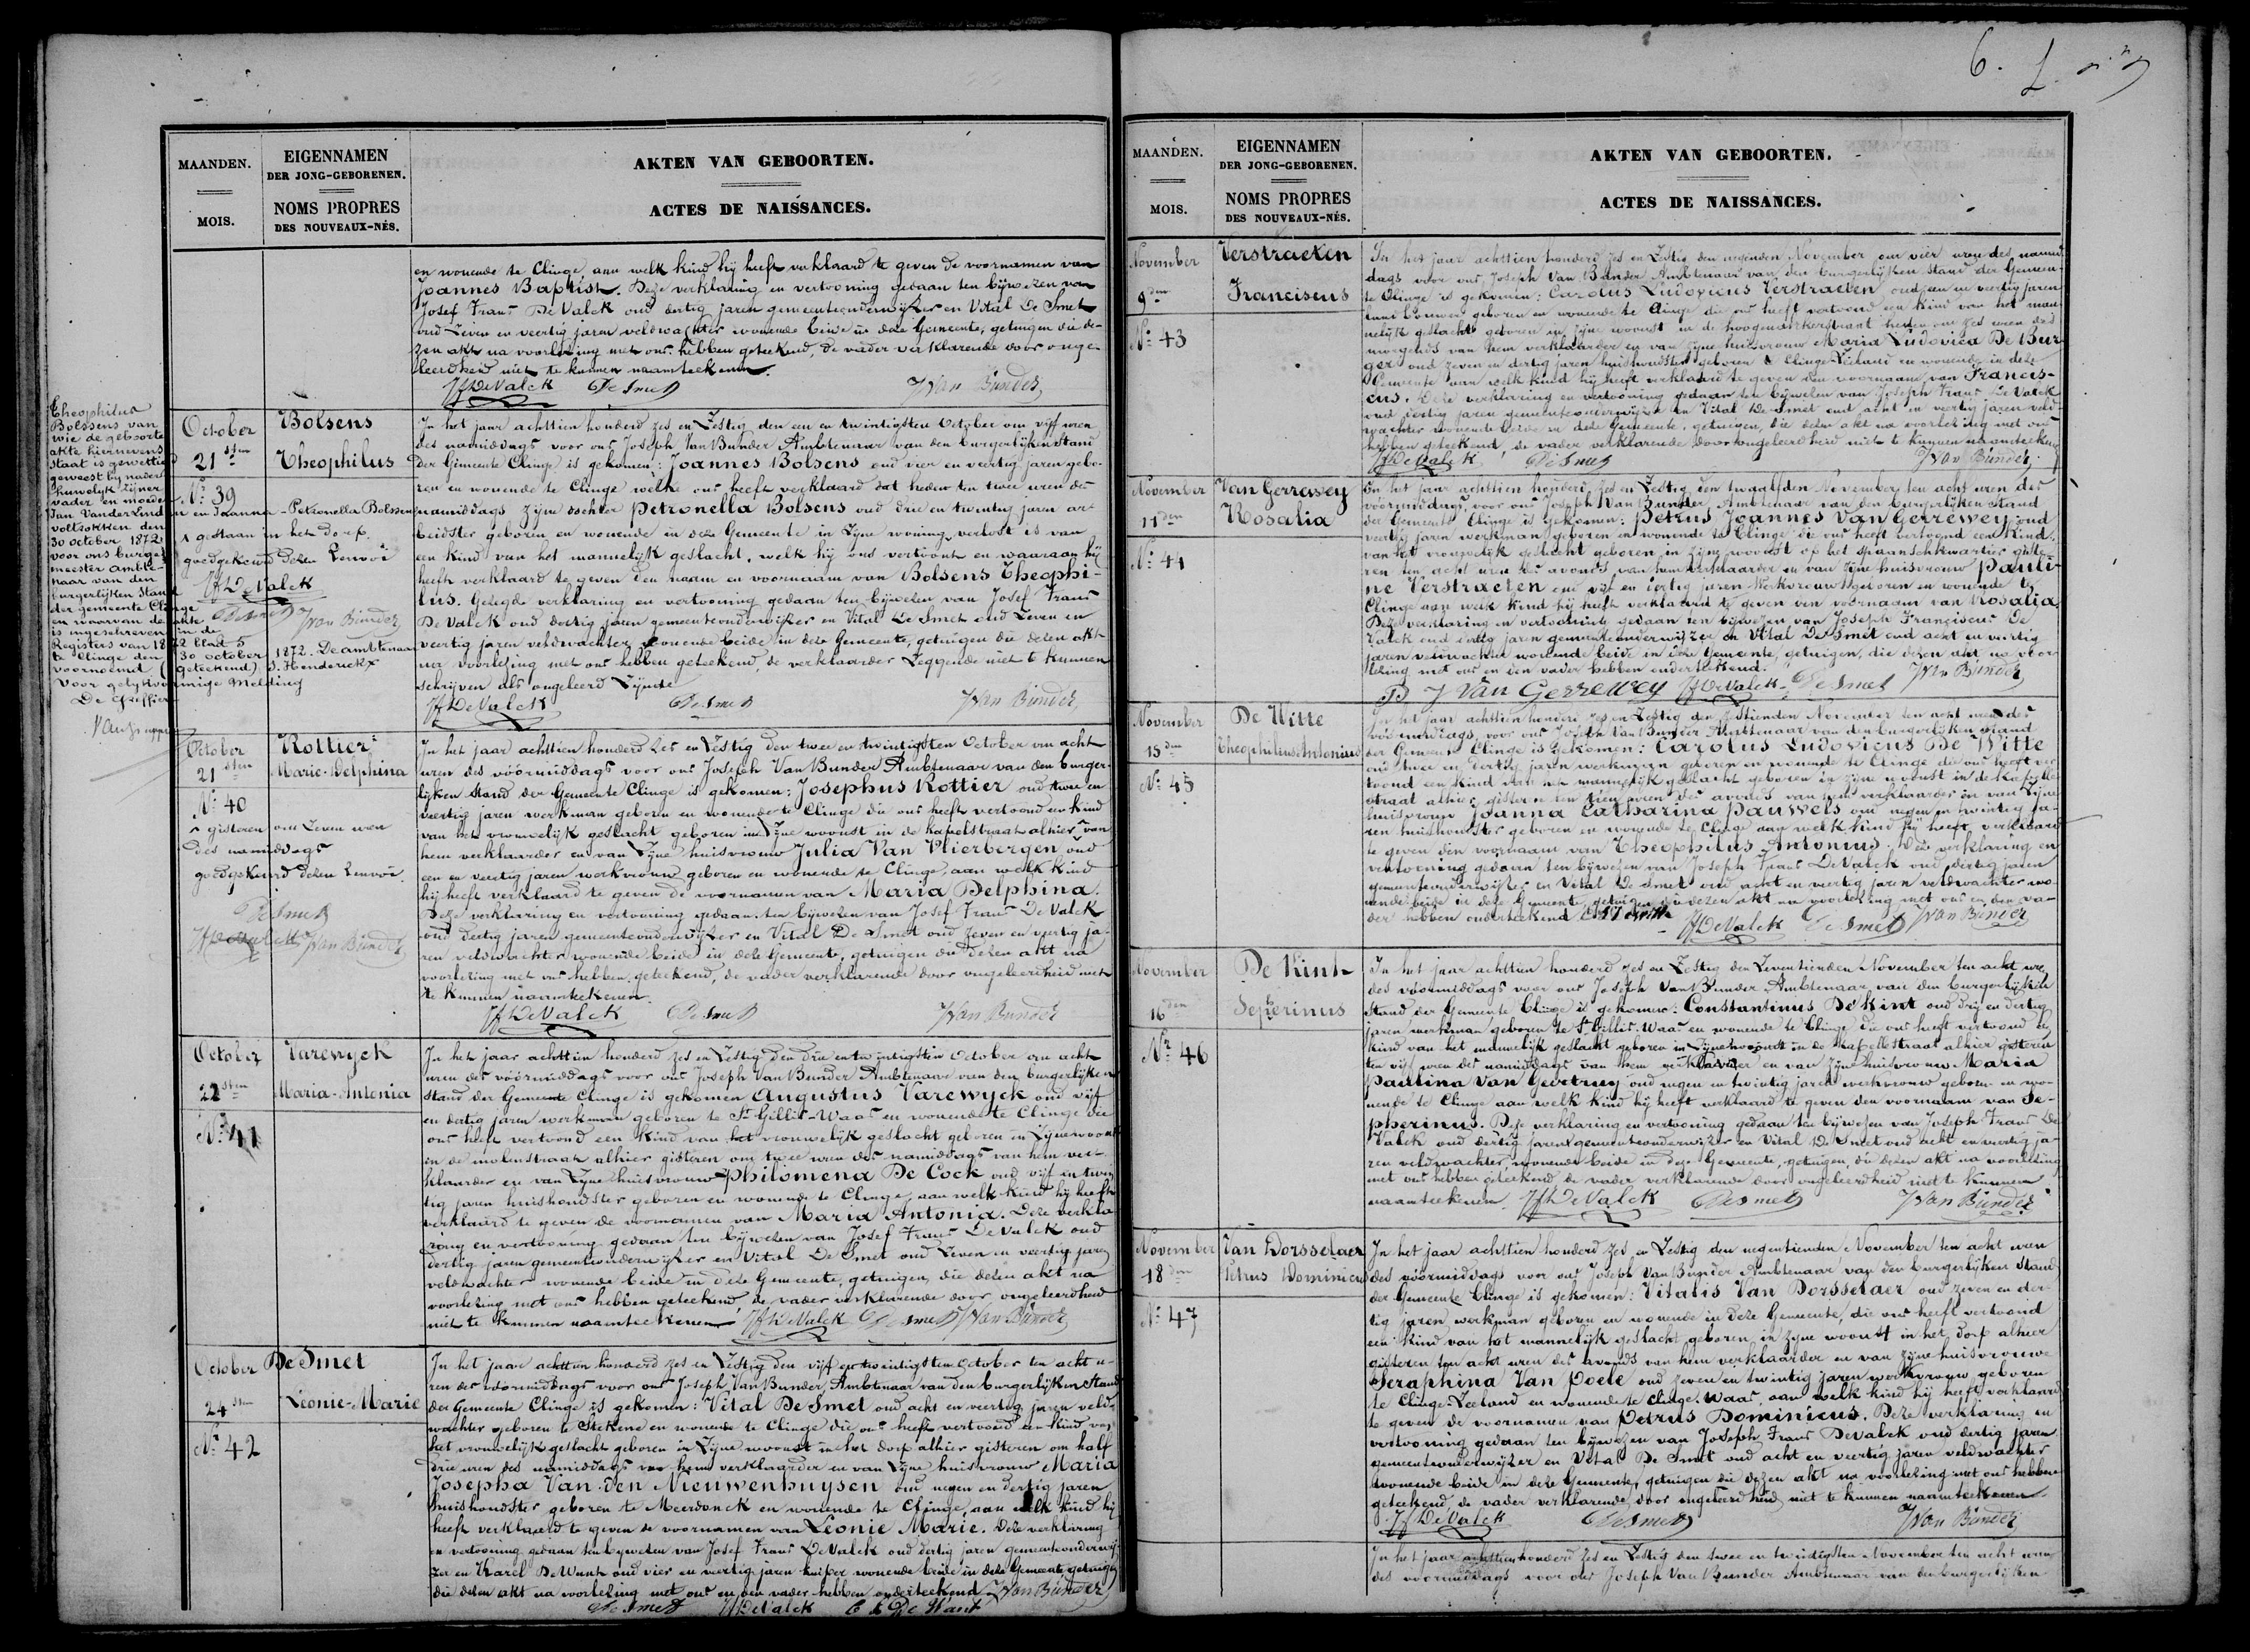 6.
MAANDEN.
MOIS.
EIGENNAMEN
DER JONG-GEBORENEN.
NOMS PROPRES
DES NOUVEAUX-NÉS.
AKTEN VAN GEBOORTEN.
ACTES DE NAISSANCES.
en wonende te Clinge, aan welk kind hij heeft verklaard te geven de voornamen van
Joannes Baptist. Deze verklaring en vertooning gedaan ten bijwezen van
Josef Frans De Valck oud dertig jaren gemeenteonderwijzer en Vital De Smet
oud Zeven en veertig jaren veldwachter wonende beide in deze Gemeente, getuigen die de-
zen akt na voorlezing met ons hebben geteekend, de vader verklarende door onge-
leerdheid niet te kunnen naamteekenen.
JfDeValck DeSmet JVan Bunder
Theophilus
Bolssens van
wie de geboorte
akte hiernevens
staat is gewettigd
geweest bij nader
huwelijk zijner
vader en moeder
Jan Van der Linden en Joanna-Petronella Bolssens
voltrokken den
30 october 1872
voor ons burge-
meester ambte-
naar van den
burgerlijken stand
der gemeente Clinge
en waarvan de akte
is ingeschreven in de
Registers van 1872 blad 5
te Clinge den 30 october 1872. De ambtenaar
voornoemd (geteekend) S. Henderickx
Voor gelijkvormige Melding
De Greffier
October
21sten
Nr 39
Bolsens
Theophilus
^ gedaan in het dorp.
goedgekeurd dezen Renvoi
JfDeValck
DeSmet JVan Bunder
In het jaar achttien honderd zes en Zestig den een en twintigsten October om vijf uren
des namiddags voor ons Joseph Van Bunder Ambtenaar van den burgerlijken Stand
der Gemeente Clinge is gekomen: Joannes Bolsens oud vier en veertig jaren gebo-
ren en wonende te Clinge welke ons heeft verklaard dat heden ten twee uren des
namiddags zijne dochter Petronella Bolsens oud drie en twintig jaren ar-
beidster geboren en wonende in deze Gemeente in Zijne woning verlost is van
een kind van het mannelijk geslacht, welk hij ons vertoont en waaraan hij
heeft verklaard te geven den naam en voornaam van Bolsens Theophi-
lus. Gezegde verklaring en vertooning gedaan ten bijwezen van Josef Frans
De Valck oud dertig jaren gemeenteonderwijzer en Vital De Smet oud Zeven en
veertig jaren veldwachter wonende beide in deze Gemeente, getuigen die dezen akt
na voorlezing met ons hebben geteekend de verklaarder Zeggende niet te kunnen
schrijven als ongeleerd Zijnde
JfDeValck DeSmet JVan Bunder
October
21sten
Nr 40
Rottier
Marie-Delphina
^ gisteren om Zeven uren
des namiddags
goedgekeurd dezen Renvoi.
DeSmet
JfDeValck JVan Bunder
In het jaar achttien honderd Zes en Zestig den twee en twintigsten October om acht
uren des vóórmiddags voor ons Joseph Van Bunder Ambtenaar van den burger-
lijken Stand der Gemeente Clinge is gekomen: Josephus Rottier oud twee en
veertig jaren werkman geboren en wonende te Clinge die ons heeft vertoond een kind
van het vrouwelijk geslacht geboren in Zijne woonst in de kapelstraat alhier ^ van
hem verklaarder en van Zijne huisvrouw Julia Van Vlierbergen oud
een en veertig jaren werkvrouw geboren en wonende te Clinge, aan welk kind
hij heeft verklaard te geven de voornamen van Maria Delphina.
Deze verklaring en vertooning gedaan ten bijwezen van Josef Frans De Valck
oud dertig jaren gemeenteonderwijzer en Vital De Smet oud zeven en veertig ja-
ren veldwachter wonende beide in deze Gemeente, getuigen die dezen akt na
voorlezing met ons hebben geteekend, de vader verklarende door ongeleerdheid niet
te kunnen naamteekenen.
JfDeValck DeSmet JVan Bunder
October
22sten
Nr 41
Varewyck
Maria-Antonia
In het jaar achttien honderd zes en Zestig den drie en twintigsten October om acht
uren des vóórmiddags voor ons Joseph Van Bunder Ambtenaar van den burgerlijken
stand der Gemeente Clinge is gekomen Augustus Varewyck oud vijf
en dertig jaren werkman geboren te St Gillis-Waas en wonende te Clinge die
ons heeft vertoond een kind van het vrouwelijk geslacht geboren in Zijne woonst
in de molenstraat alhier gisteren om twee uren des namiddags van hem ver-
klaarder en van Zijne huisvrouw Philomena De Cock oud vijf en twin-
tig jaren huishoudster geboren en wonende te Clinge, aan welk kind hij heeft
verklaard te geven de voornamen van Maria Antonia. Deze verkla-
ring en vertooning gedaan ten bijwezen van Josef Frans De Valck oud
dertig jaren gemeenteonderwijzer en Vital De Smet oud Zeven en veertig jaren
veldwachter wonende beide in deze Gemeente, getuigen die dezen akt na
voorlezing met ons hebben geteekend, de vader verklarende door ongeleerdheid
niet te kunnen naamteekenen JfDeValck DeSmet JVan Bunder
October
24sten
Nr 42
De Smet
Léonie-Marie
In het jaar achttien honderd zes en Zestig den vijf en twintigsten October ten acht u-
ren des voormiddags voor ons Joseph Van Bunder, Ambtenaar van den burgerlijken Stand
der Gemeente Clinge is gekomen: Vital De Smet oud acht en veertig jaren veld-
wachter geboren te Stekene en wonende te Clinge die ons heeft vertoond een kind van
het vrouwelijk geslacht geboren in Zijne woonst in het dorp alhier gisteren om half
drie uren des namiddags van hem verklaarder en van Zijne huisvrouw Maria
Josepha Van den Nieuwenhuysen oud negen en dertig jaren
huishoudster geboren te Meerdonck en wonende te Clinge, aan welk kind hij
heeft verklaard te geven de voornamen van Léonie Marie. Deze verklaring
en vertooning gedaan ten bijwezen van Josef Frans De Valck oud dertig jaren gemeenteonderwij-
zer en Karel De Want oud vier en veertig jaren kuiper wonende beide in deze Gemeente, getuigen
die dezen akt na voorlezing met ons en den vader hebben onderteekend JVan Bunder
DeSmet JfDeValck De Want
MAANDEN.
MOIS.
EIGENNAMEN
DER JONG-GEBORENEN.
NOMS PROPRES
DES NOUVEAUX-NÉS.
AKTEN VAN GEBOORTEN.
ACTES DE NAISSANCES.
November
9den
Nr 43
Verstraeten
Franciscus
In het jaar achttien honderd zes en Zestig den negenden November om vier uren des namid-
dags voor ons Joseph Van Bunder Ambtenaar van den burgerlijken stand der Gemeen-
te Clinge is gekomen: Carolus Ludovicus Verstraeten oud een en veertig jaren
landbouwer geboren en wonende te Clinge die ons heeft vertoond een kind van het man-
nelijk geslacht geboren in zijne woonst in de hoogenakkerstraat heden om zes uren des
morgends van hem verklaarder en van zijne huisvrouw Maria Ludovica De Bur-
ger oud zeven en dertig jaren huishoudster geboren te Clinge-Zeeland en wonende in deze
Gemeente aan welk kind hij heeft verklaard te geven den voornaam van Francis-
cus. Deze verklaring en vertooning gedaan ten bijwezen van Joseph Frans De Valck
oud dertig jaren gemeenteonderwijzer en Vital De Smet oud acht en veertig jaren veld-
wachter wonende beide in deze Gemeente, getuigen, die dezen akt na voorlezing met ons
hebben geteekend, de vader verklarende door ongeleerdheid niet te kunnen naamteekenen
JfDeValck DeSmet JVan Bunder
November
11den
Nr 44
Van Gerrewey
Rosalia
In het jaar achttien honderd zes en Zestig den twaalfden November ten acht uren des
voormiddags, voor ons Joseph Van Bunder Ambtenaar van den burgerlijken stand
der Gemeente Clinge is gekomen: Petrus Joannes Van Gerrewey oud
veertig jaren werkman geboren en wonende te Clinge die ons heeft vertoond een kind
van het vrouwelijk geslacht geboren in zijne woonst op het spaansch kwartier giste-
ren ten acht uren des avonds van hem verklaarder en van zijne huisvrouw Pauli-
ne Verstraeten oud vijf en dertig jaren Werkvrouw geboren en wonende te
Clinge aan welk kind hij heeft verklaard te geven den voornaam van Rosalia.
Deze verklaring en vertooning gedaan ten bijwezen van Joseph Franciscus De
Valck oud dertig jaren gemeenteonderwijzer en Vital De Smet oud acht en veertig
jaren veldwachter wonende beide in deze Gemeente, getuigen, die dezen akt na voor-
lezing met ons en den vader hebben onderteekend.
P J Van Gerrewey JfDeValck DeSmet JVan Bunder
November
15den
Nr 45
De Witte
Theophilus Antonius
In het jaar achttien honderd zes en Zestig den zestienden November ten acht uren des
voormiddags, voor ons Joseph Van Bunder Ambtenaar van den burgerlijken stand
der Gemeente Clinge is gekomen: Carolus Ludovicus De Witte
oud twee en dertig jaren werkman geboren en wonende te Clinge die ons heeft ver-
toond een kind van het mannelijk geslacht geboren in zijne woonst in de kapelle-
straat alhier gisteren ten tien uren des avonds van hem verklaarder en van Zijne
huisvrouw Joanna Catharina Pauwels oud negen en twintig ja-
ren huishoudster geboren en wonende te Clinge aan welk kind hij heeft verklaard
te geven den voornaam van Theophilus Antonius. Deze verklaring en
vertooning gedaan ten bijwezen van Joseph Frans De Valck oud dertig jaren
gemeenteonderwijzer en Vital De Smet oud acht en veertig jaren veldwachter wo-
nende beide in deze Gemeente, getuigen die dezen akt na voorlezing met ons en den va-
der hebben onderteekend
JfDeValck DeSmet JVan Bunder
November
16den
Nr 46
De Kint
Sepherinus
In het jaar achttien honderd zes en Zestig den Zeventienden November ten acht uren
des voormiddags voor ons Joseph Van Bunder Ambtenaar van den burgerlijken
Stand der Gemeente Clinge is gekomen: Constantinus De Kint oud drij en dertig
jaren werkman geboren te St Gillis-Waas en wonende te Clinge die ons heeft vertoond een
kind van het mannelijk geslacht geboren in Zijne woonst in de kapellestraat alhier gisteren
ten vijf uren des namiddags van hem verklaarder en van zijne huisvrouw Maria
Paulina Van Geertruy oud negen en twintig jaren werkvrouw geboren en wo-
nende te Clinge aan welk kind hij heeft verklaard te geven den voornaam van Se-
pherinus. Deze verklaring en vertooning gedaan ten bijwezen van Joseph Frans De
Valck oud dertig jaren gemeenteonderwijzer en Vital De Smet oud acht en veertig ja-
ren veldwachter, wonende beide in deze Gemeente, getuigen, die dezen akt na voorlezing
met ons hebben geteekend, de vader verklarende door ongeleerdheid niet te kunnen
naamteekenen. JfDeValck DeSmet JVan Bunder
November
18den
Nr 47
Van Dorsselaer
Petrus Dominicus
In het jaar achttien honderd zes en Zestig den negentienden November ten acht uren
des vóórmiddags voor ons Joseph Van Bunder Ambtenaar van den burgerlijken Stand
der Gemeente Clinge is gekomen: Vitalis Van Dorsselaer oud zeven en der-
tig jaren, werkman geboren en wonende in deze Gemeente, die ons heeft vertoond
een kind van het mannelijk geslacht geboren in zijne woonst in het dorp alhier
gisteren ten acht uren des avonds van hem verklaarder en van zijne huisvrouwe
Seraphina Van Poele oud zeven en twintig jaren werkvrouw geboren
te Clinge-Zeeland en wonende te Clinge-Waas, aan welk kind hij heeft verklaard
te geven de voornamen van Petrus Dominicus. Deze verklaring en
vertooning gedaan ten bijwezen van Joseph Frans De Valck oud dertig jaren
gemeenteonderwijzer en Vital De Smet oud acht en veertig jaren veldwachter
wonende beide in deze Gemeente, getuigen die dezen akt na voorlezing met ons hebben
geteekend, de vader verklarende door ongeleerdheid niet te kunnen naamteekenen
JfDeValck DeSmet JVan Bunder
In het jaar achttien honderd zes en Zestig den twee en twintigsten November ten acht uren
des voormiddags voor ons Joseph Van Bunder Ambtenaar van den burgerlijken